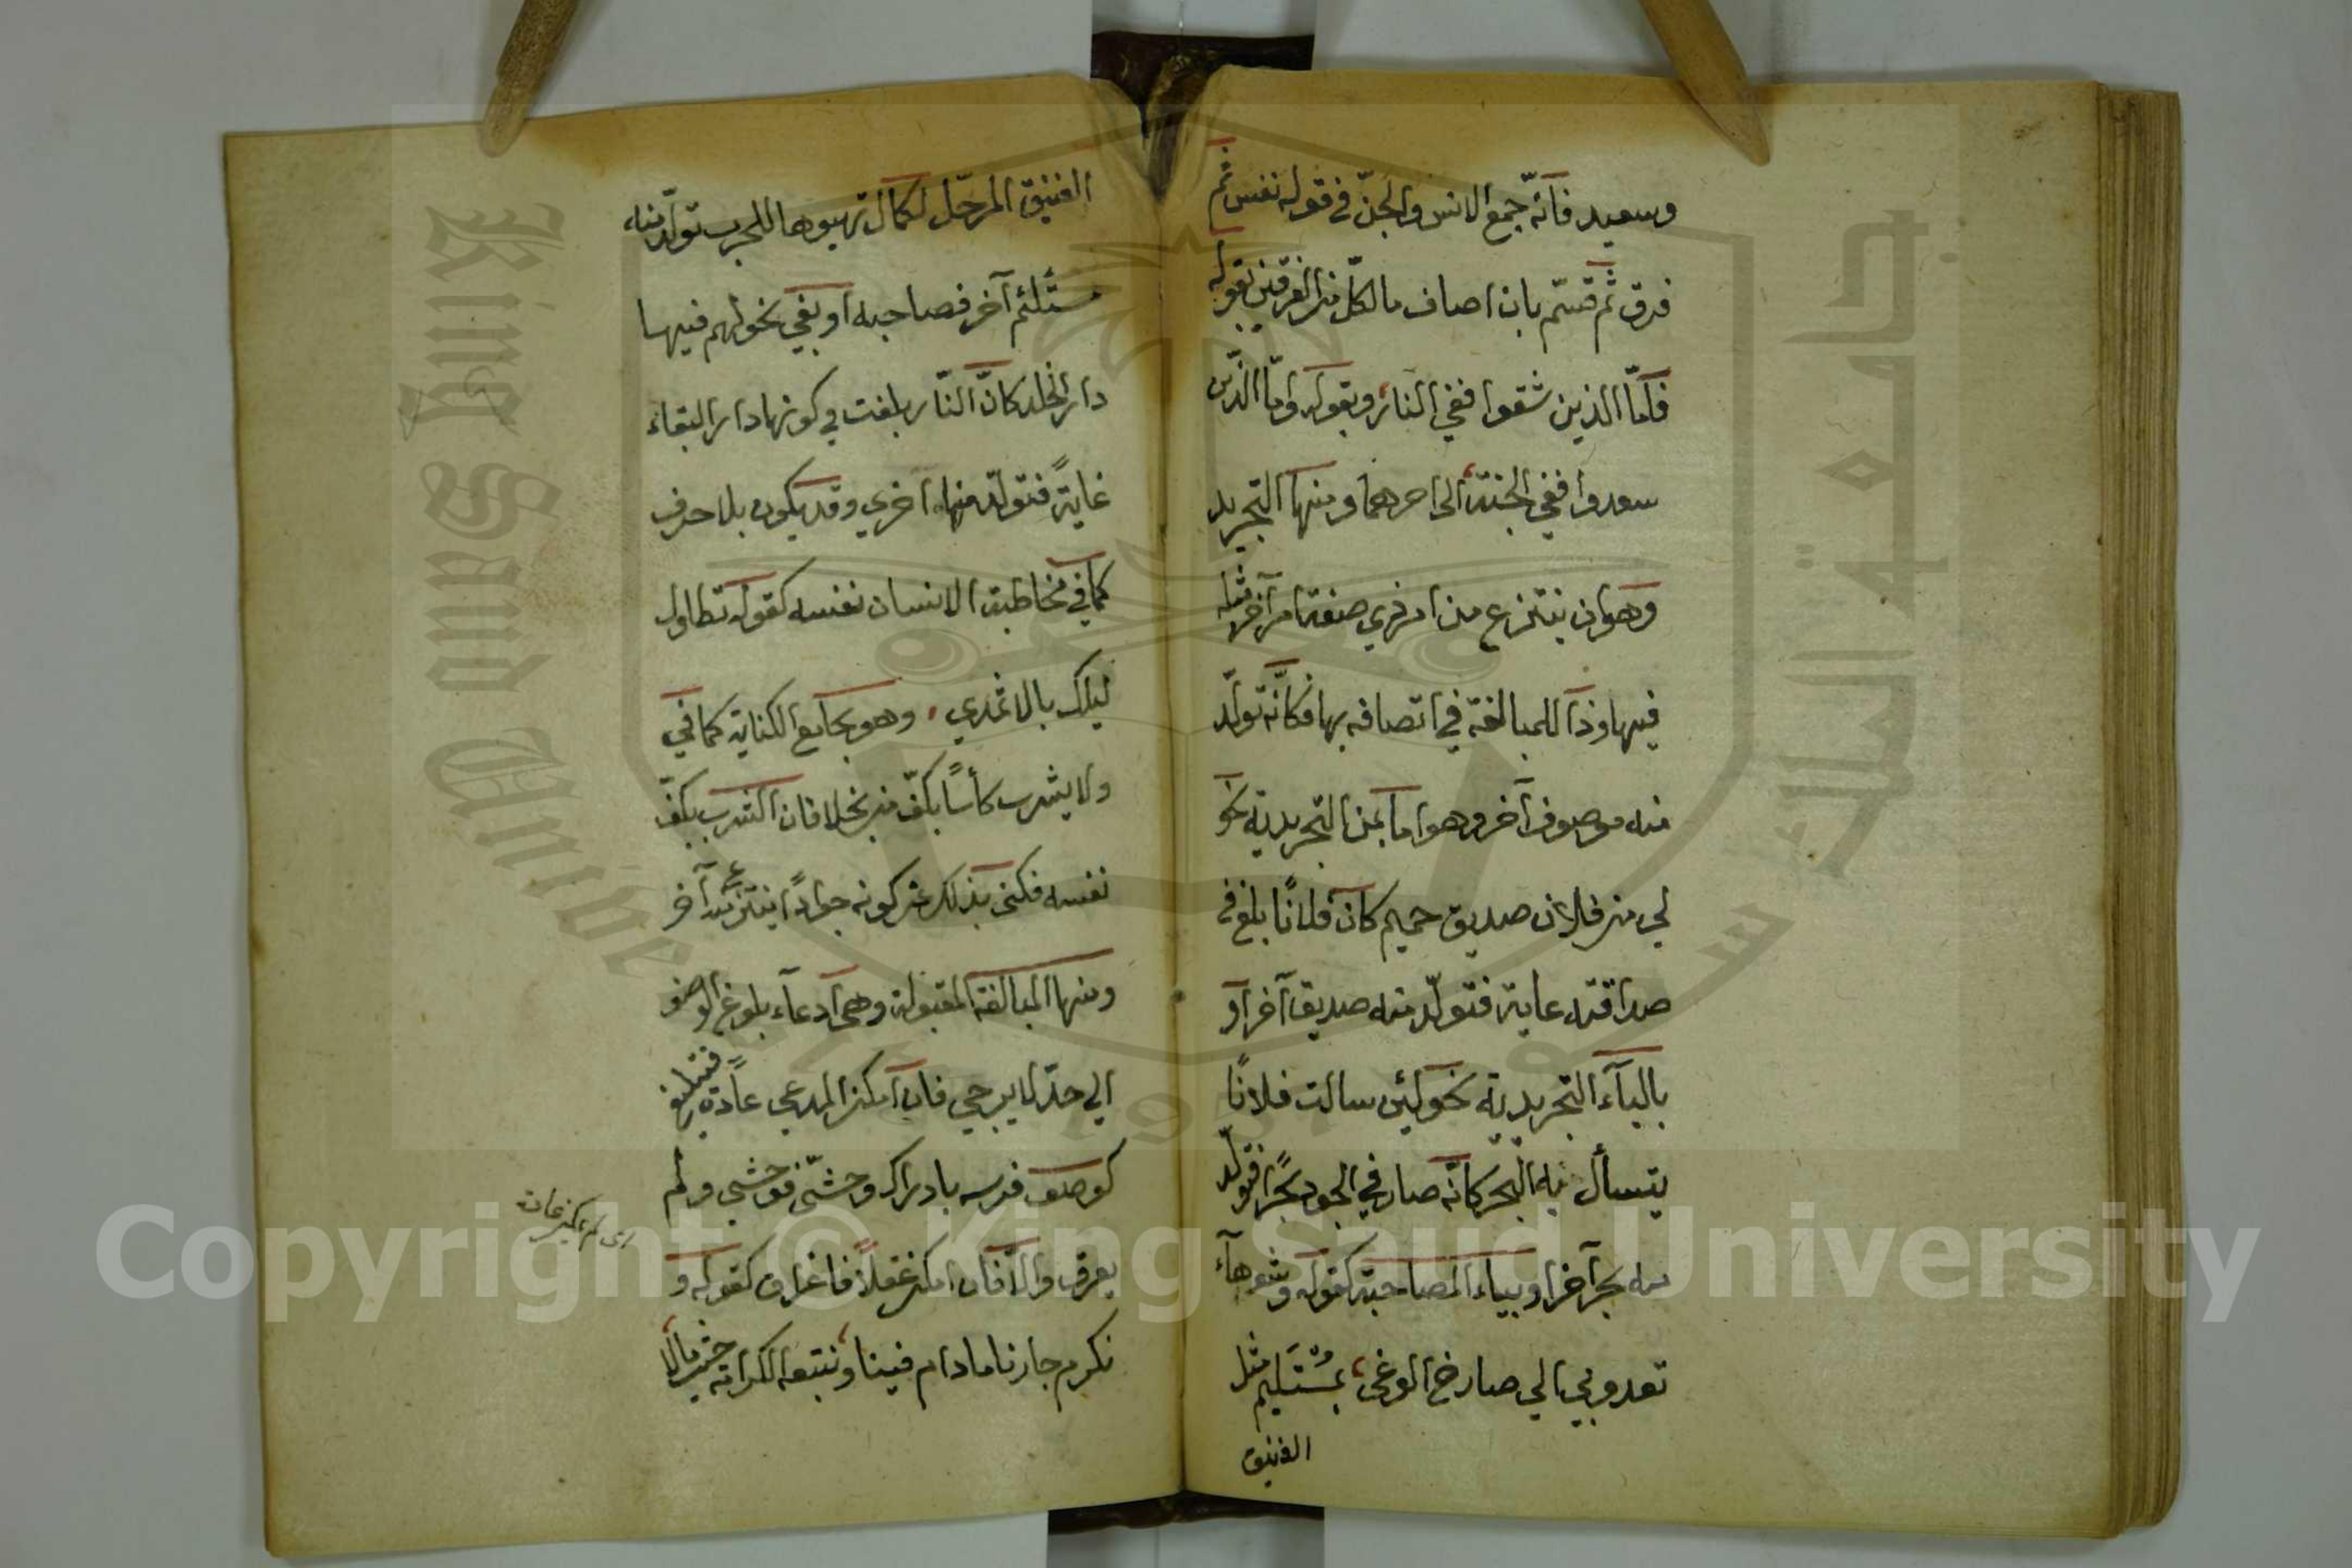 وسعيد فآنّه جمع الانس والجنّ في قوله نفس ثم
فرق ثم قسّم بان اضاف ما لكلّ من الفرقين بقوله
فآمّا الذين شقوا ففي النار وبقوله وامّا الذين
سعدوا ففي الجنة الى آخرهما ومنها التجريد
وهو ان ينتزع من امر ذي صفة امر آخر مثله
فيها وذا للمبالغة في اتصافه بها فكانّه تولّد
منه موصوف آخر وهو اما بمن التجريدية نحو
لي من فلان صديق حميم كان فلانًا بلغ في
صداقته غاية فتولّد منه صديق آخر او
بالبآء التجريدية نحو لئن سالت فلانًا
يتسأل به البحر كانّه صار في الجود بحرًا فتولّد
منه بحر آخر او بباء المصاحبة كقوله وشوهآء
تعدو بي الي صارخ الوغى بمُسْتَلئم مثل
الفنيق
الفنيق المرحّل لكمال تهيوها للحرب تولّد منه
مستلئم آخر فصاحبه او بفي نحو لهم فيها
دار الخلد كانّ النّار بلغت في كونها دار البقاء
غايةً فتولّد منها اخري وقد يكون بلا حرف
كما في مخاطبة الانسان نفسه كقوله تطاول
ليلك بالاثمدي وهو يجامع الكناية كما في
ولا يشرب كأسًا بكفّ من بخلا فان الشرب بكفّ
نفسه فكنى بذلك عن كونه جوادًا ينتزع منه آخر
ومنها المبالغة المقبولة وهي ادعآء بلوغ الوصف
الي حدّ لا يرجي فان امكن المدعي عادةً فتبليغ
كوصف فرسه بادراك وحشيّ فوحشي ولم
يعرق والّا فان امكن عقلًا فاغراق كقوله و
نكرم جارنا ما دام فينا ونتبعه الكرامة حيث مالا
اى لم يمكن عادة
Copyright © King Saud University
King Saud University
جامعة الملك سعود
1957